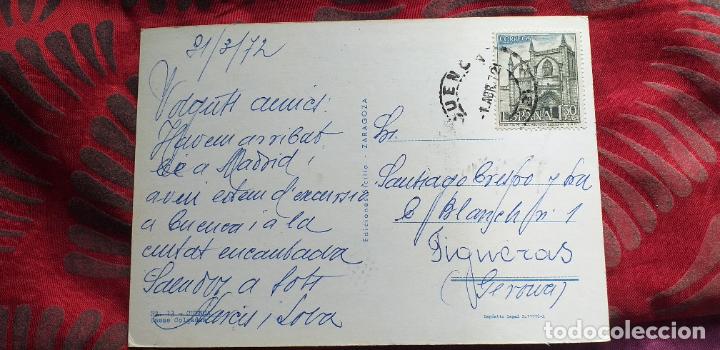 31/3/72
Volguts amics:
Havem arribat
bé a Madrid i
avui estem d'excursió
a Cuenca i a la
ciutat encantada
Saludos a tots
Narcís i
Nº. 13 - CUENCA
Casas Colgadas
Ediciones Sicilia - ZARAGOZA
Depósito Legal
CORREOS
ESPAÑA
CUENCA
-1.ABR.72
Sr.
Santiago Crespo y Sra
C/ Blanch nº 1
Figueras
(Gerona)
todocoleccion.net